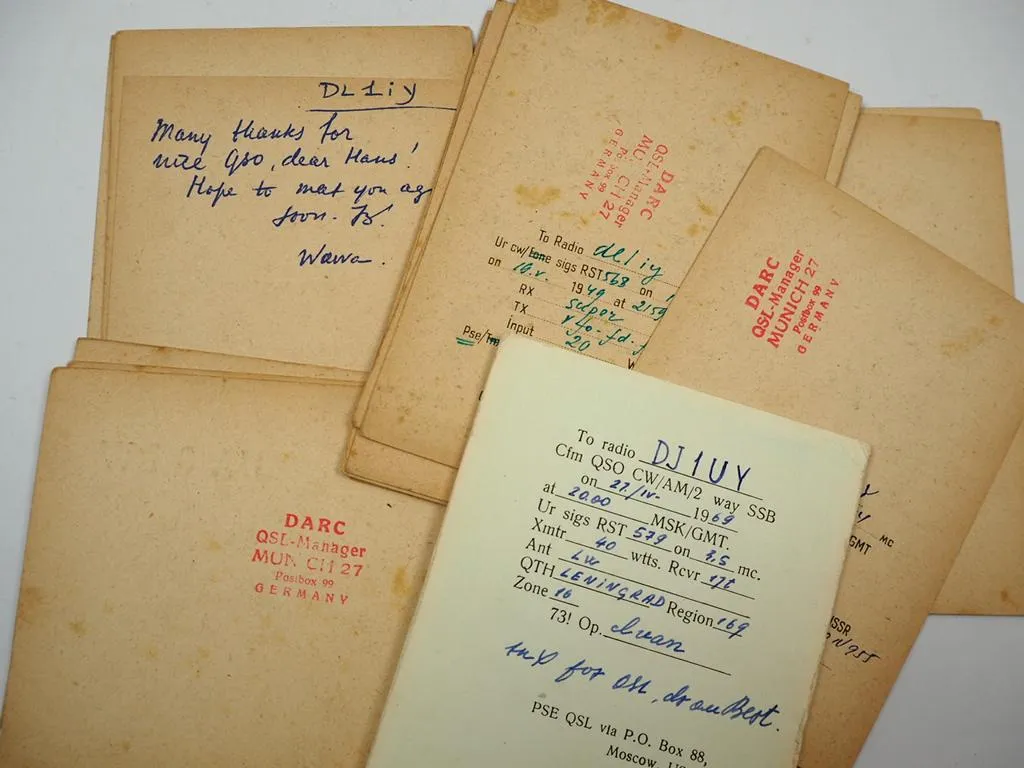 DL1iy
Many thanks for
nice QSO, dear Hans!
Hope to meet you ag
soon.
Wawa.
DARC
QSL-Manager
MUNICH 27
Postbox 99
GERMANY
To Radio dl1iy
Ur cw/fone sigs RST 568 on
on 19.V. 1949 at 2159
RX super
TX
Input 20
Pse/
DARC
QSL-Manager
MUNICH 27
Postbox 99
GERMANY
mc
GMT
SSR
DARC
QSL-Manager
MUNICH 27
Postbox 99
GERMANY
To radio DJ1UY
Cfm QSO CW/AM/2 way SSB
on 27/IV- 1969
at 2000 MSK/GMT.
Ur sigs RST 579 on 3,5 mc.
Xmtr 40 wtts. Rcvr 17t
Ant LW
QTH LENINGRAD Region 169
Zone 16
73! Op. Ivan
tnx for QSL, dr om Best.
PSE QSL via P.O. Box 88,
Moscow, US